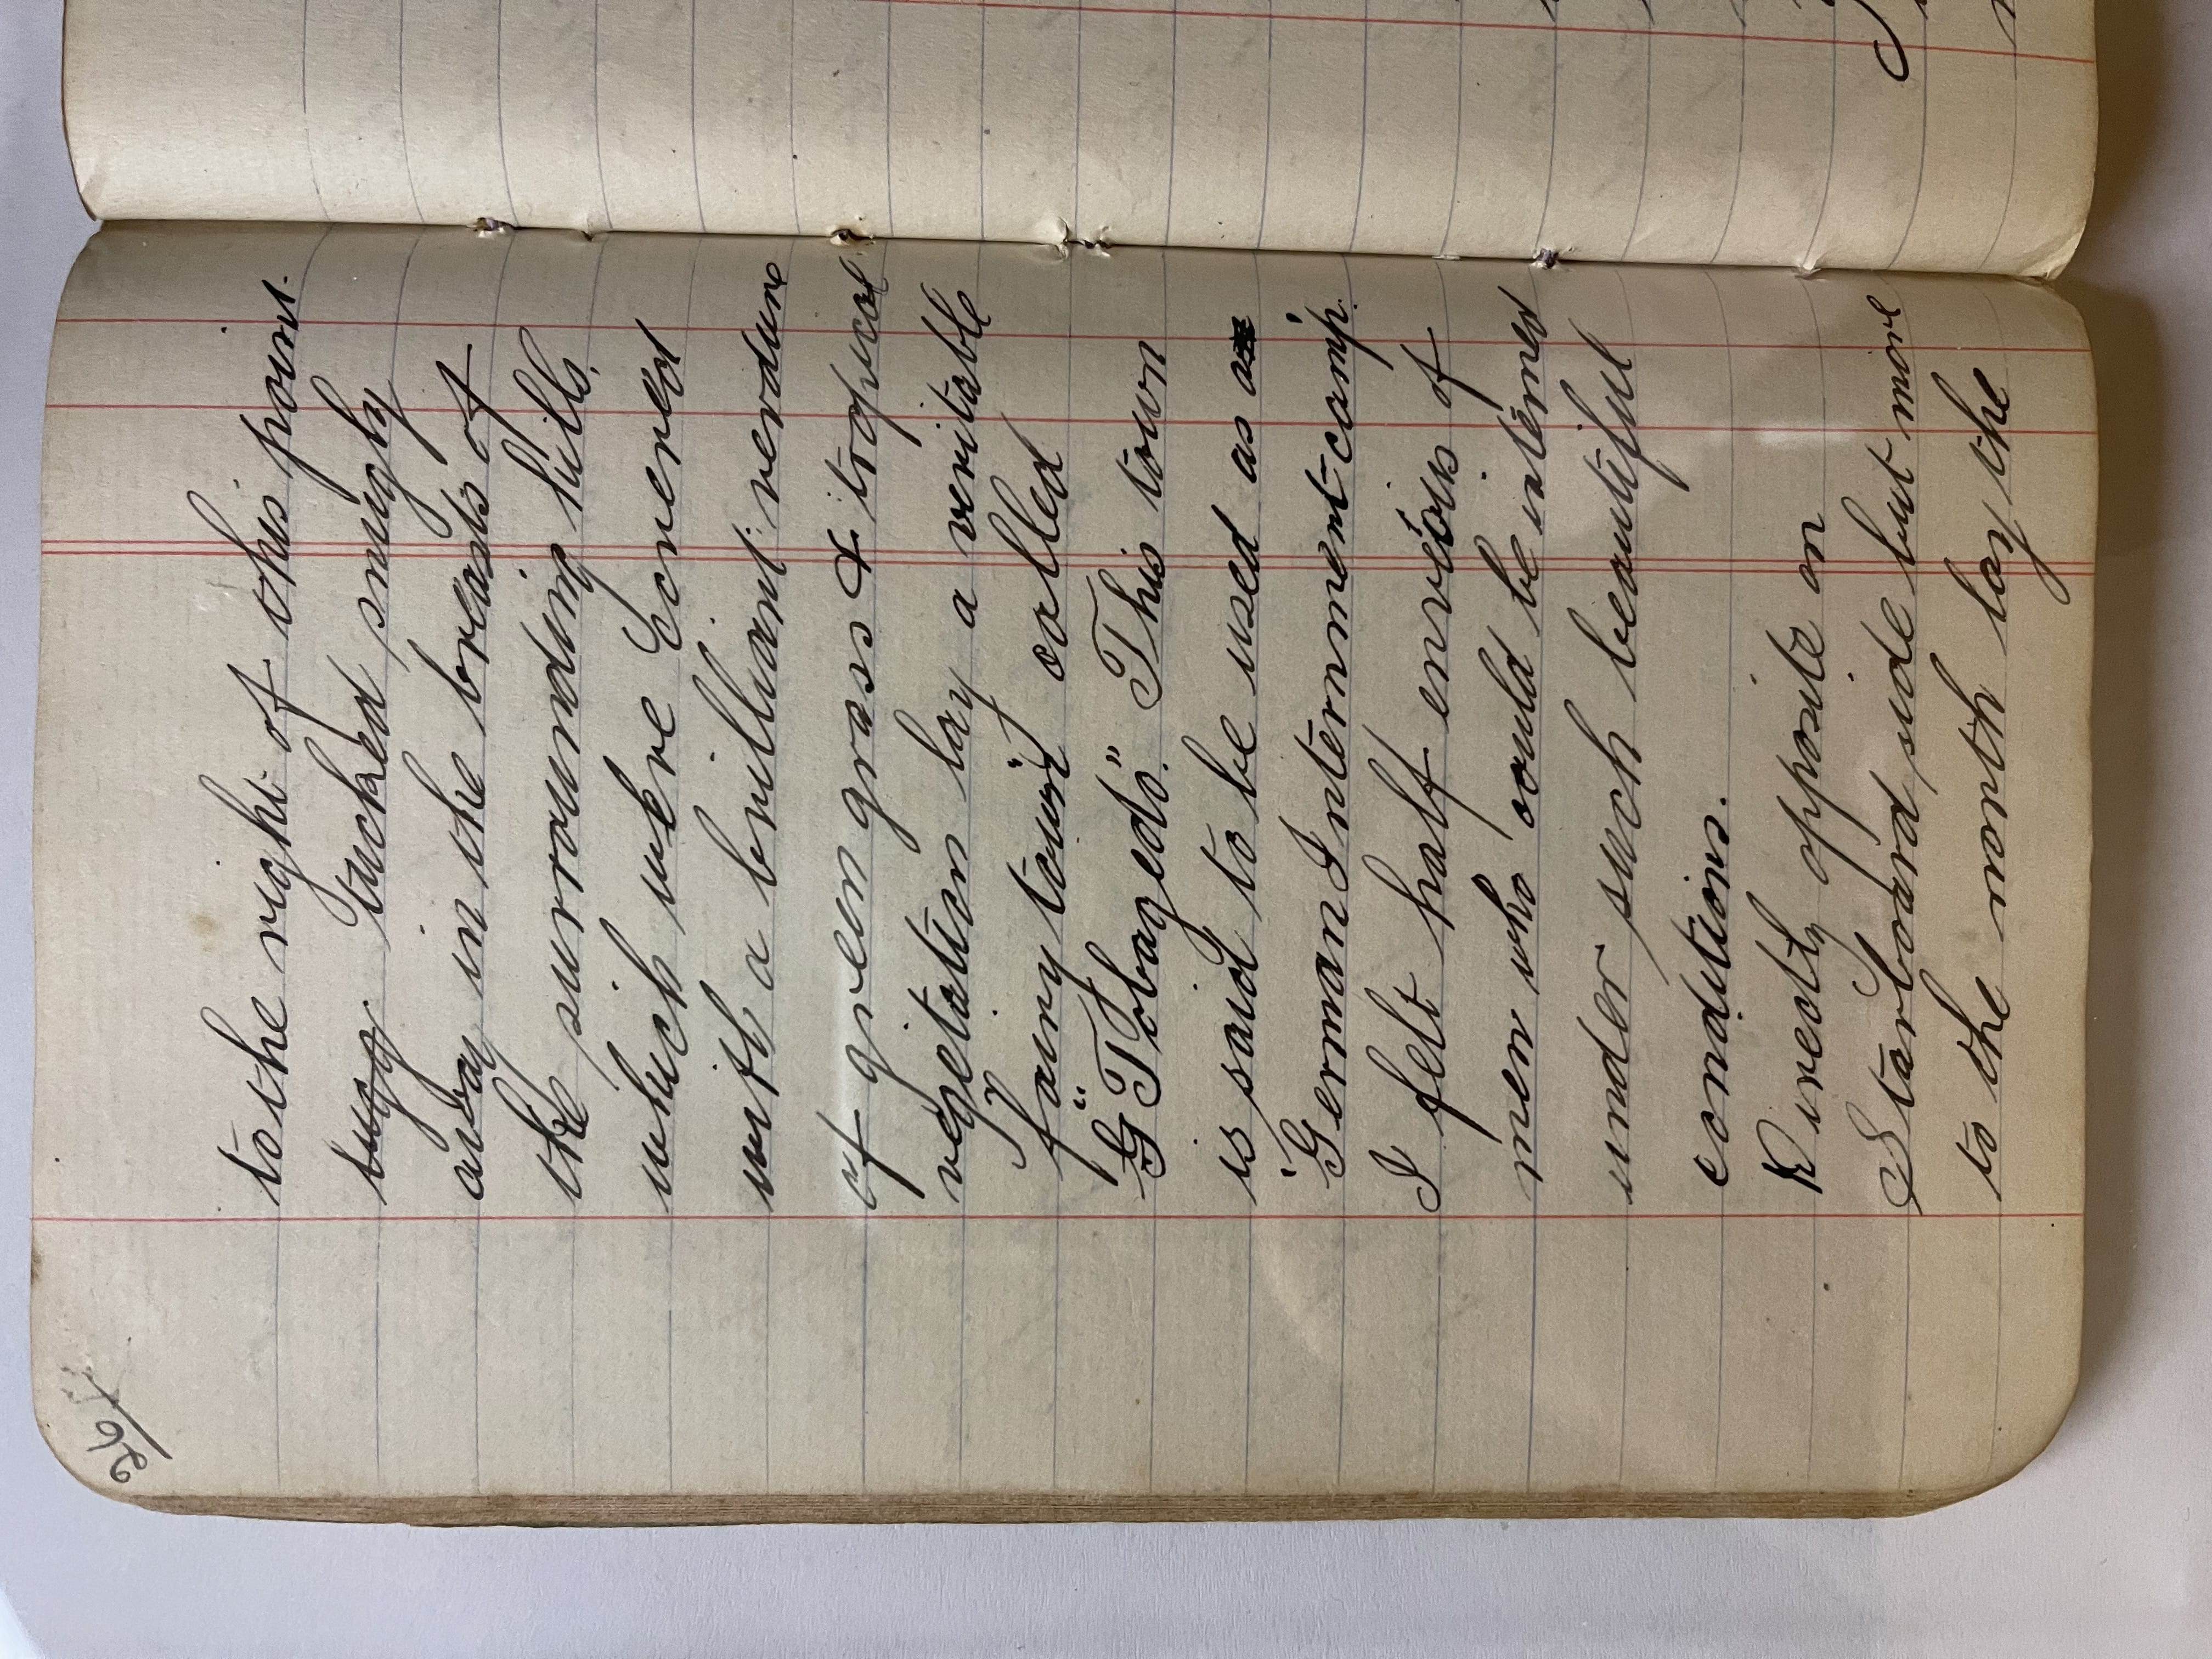 26/
to the right of this point.
tugg. Tucked snugly
away in the breasts of
the surrounding hills,
which were Covered
with a brilliant verdure
of green grass & tropical
vegetation lay a veritable
fairy town called
"Tobagedo." This town
is said to be used as a
German Internment-camp.
I felt half envious of
men who could be interned
under such beautiful
conditions.
Directly opposite on
Starboard side but more
to the north lay the